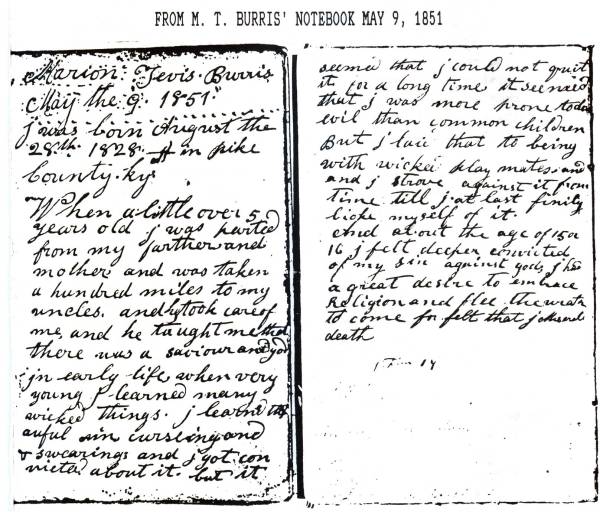 FROM M. T. BURRIS' NOTEBOOK MAY 9, 1851
Marion Tevis Burris
May the 9. 1851.
j was born August the
28th. 1828. in pike
County. ky
When a little over 5
years old j was parted
from my farther and
mother and was taken
a hundred miles to my
uncles. and hy took care of
me, and he taught me that
there was a saviour and god
jn early life, when very
young j learned many
wicked things. j learnd
auful sin curseing and
& swearings and j got con
victed about it. but it
seemed that j could not quit
it for a long time it seemed
that j was more prone to do
evil than common children
But j laid that to being
with wicked play mates. and
and j strove against it from
time till j at last finily
broke myself of it.
And about the age of 15 or
16 j felt deeper convicted
of my sin against god, j had
a great desire to embrace
Religion and flee the wrath
to come for felt that j
death